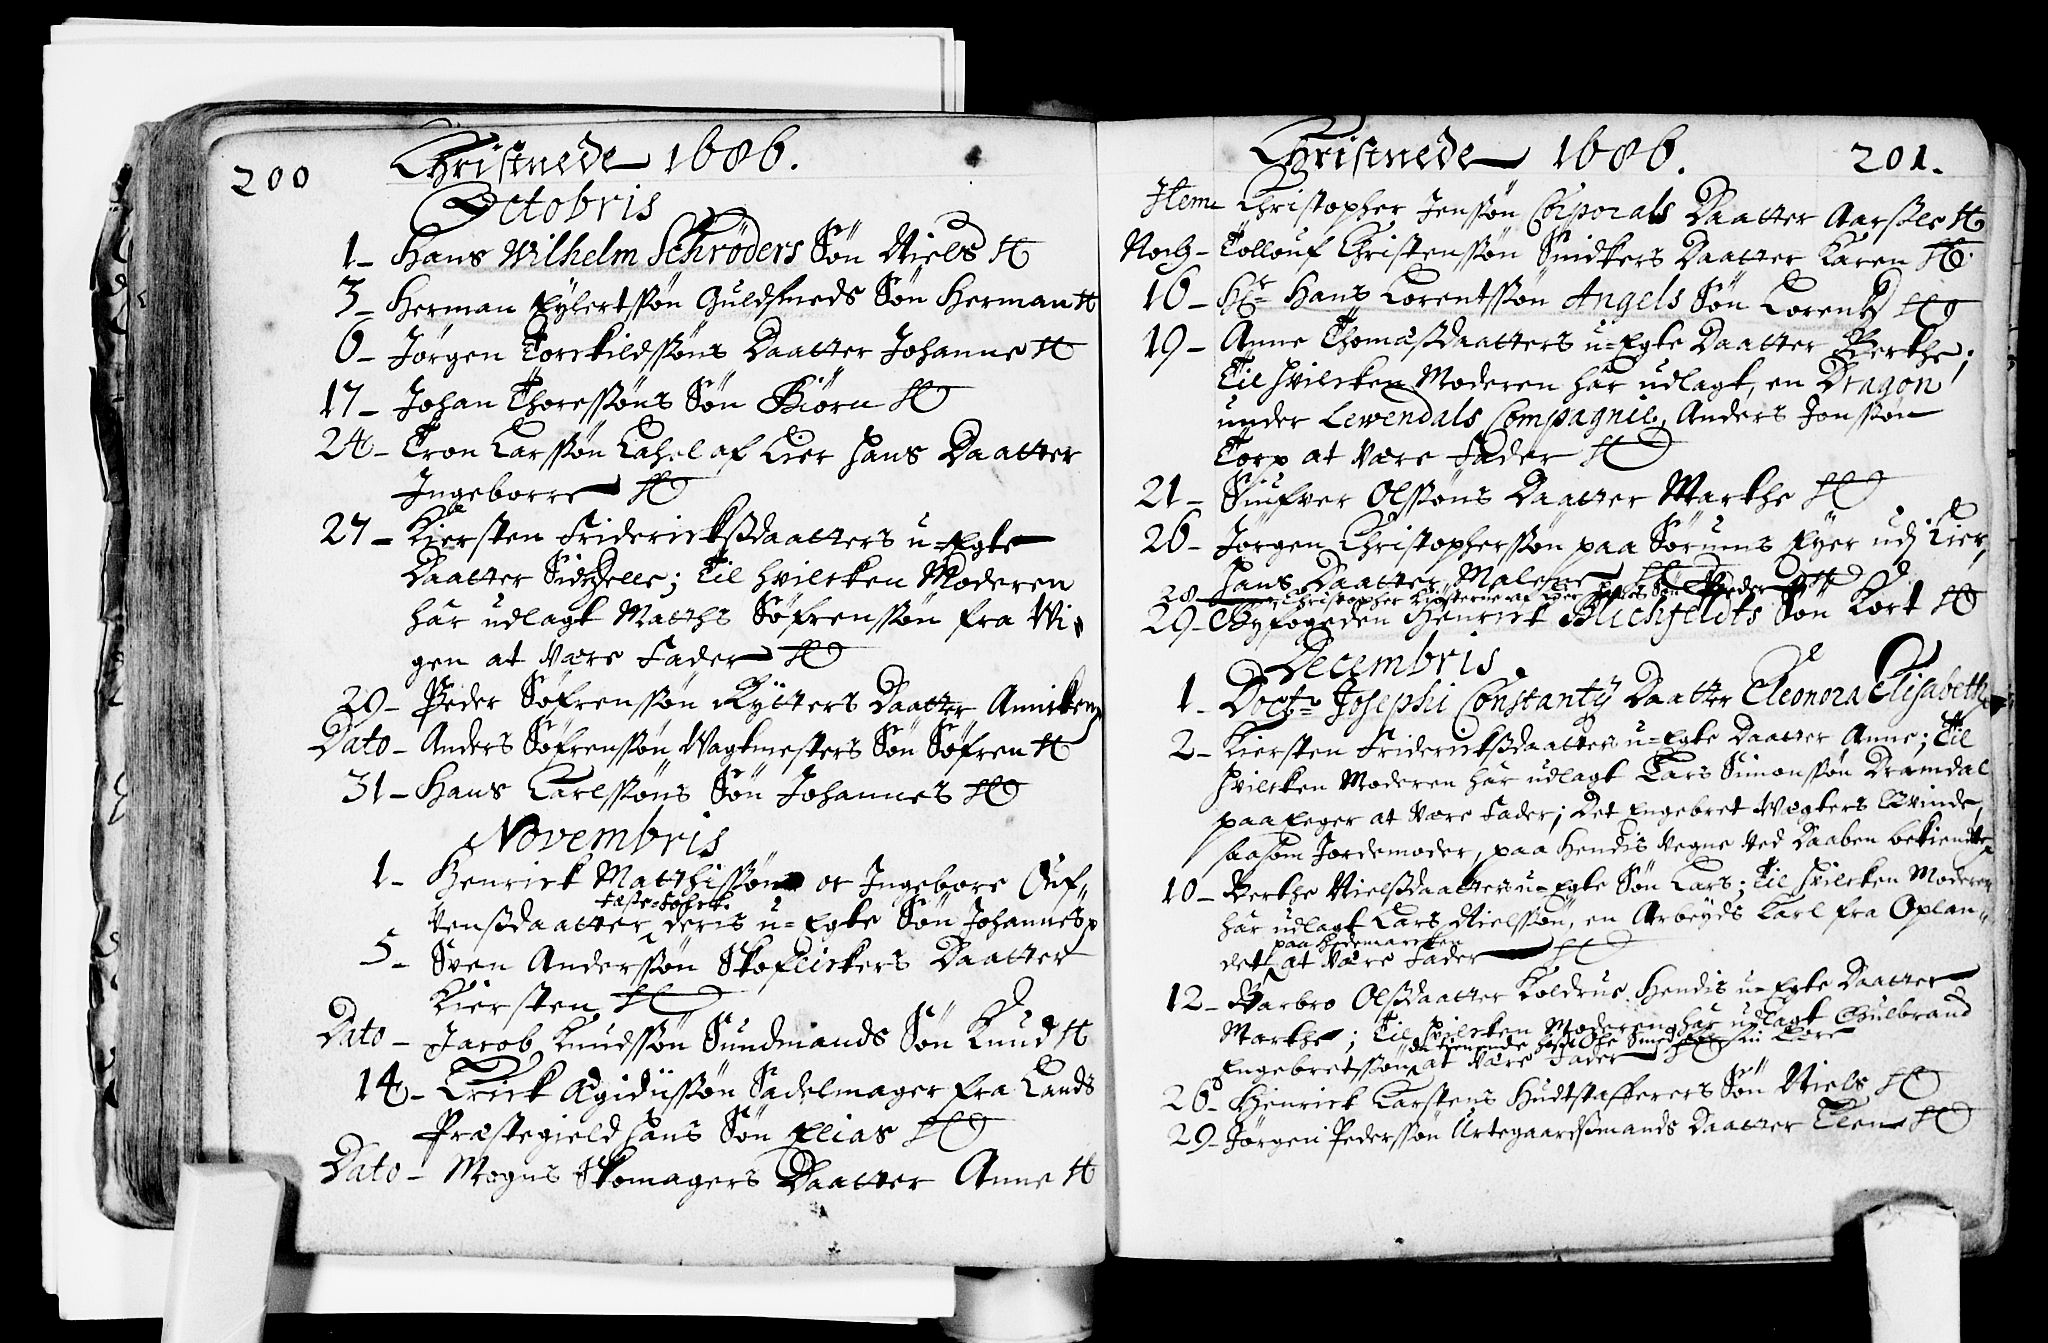 200
Christnede 1686.
Octobris
1 - Hans Wilhelm Schrøders Søn Niels
3 - Herman Eylertssøn Guldsmeds Søn Herman
6 - Jørgen Torckildssøns Daatter Johanne
17 - Johan Thoressøns Søn Biørn
24 - Tron Larssøn Lahel af Lier hans Daatter
Ingeborre
27 - Kiersten Friderichsdaatters u-Egte
Daatter Sidzelle; Til hvilcken Moderen
har udlagt Matths Søfrenssøn fra Vi-
gen at være Fader
29 - Peder Søfrenssøn Rytters Daatter Annicken
Dato - Anders Søfrenssøn Wagtmesters Søn Søfren
31 - Hans Carlssøns Søn Johannes
Novembris
1 - Henrick Matthissøn oc Ingebore Ouf-
vensdaatter, deris u-Egte Søn Johannes
5 - Sven Anderssøn Skoflickers Daatter
Kiersten
Dato - Jacob Knudssøn Sundmands Søn Knud
14 - Erick Ægidiissøn Sadelmager fra Lands
Præstegield hans Søn Elias
Dato - Mogns Skomagers Daatter Anne
Christnede 1686. 201.
Item Christopher Jenssøn Corporals Daatter Aarsle
Noch - Tollouf Christenssøn Snidkers Daatter Karen
16 - Hr Hans Lorentssøn Angels Søn Lorentz
19 - Anne Thomasdaatters u-Egte Daatter Berthe;
Til hvilcken Moderen har udlagt, en Dragon
under Lewendals Compagnie, Anders Jonssøn
Torp at være Fader
21 - Siufver Olssøns Daatter Marthe
26 - Jørgen Christopherssøn paa Sørums Eyer udj Lier,
hans Daatter Malene
28 - Christopher af Lier hans Søn Peder
29 - Byfogeden Henrick Blichfeldts Søn Kort
Decembris
1 - Doctr Josephi Constantij Daatter Eleonora Elisabeth
2 - Kiersten Friderichsdaatters u-Egte Daatter Anne; Til
hvilcken Moderen har udlagt Lars Simonssøn Dramdal
paa Eeger at være Fader; Det Engebret Wægters Qvinde,
saasom Jordemoder, paa hendis vegne ved Daaben bekiendte
10 - Berthe Nielsdaatters u-Egte Søn Lars; Til hvilcken Moderen
har udlagt Lars Nielssøn, en Arbeyds Karl fra Oplan-
paa Hedemarcken
det, at være Fader
12 - Barbro Olsdaatter Koldrus, hendis u-Egte Daatter
Marthe; Til hvilcken Moderen har udlagt Gulbrand
tienende hos Ole Smed
Engebretssøn, at være Fader
26 - Henrick Carstens Hudtstafferers Søn Niels
29 - Jørgen Pederssøn Urtegaardsmands Daatter Elen